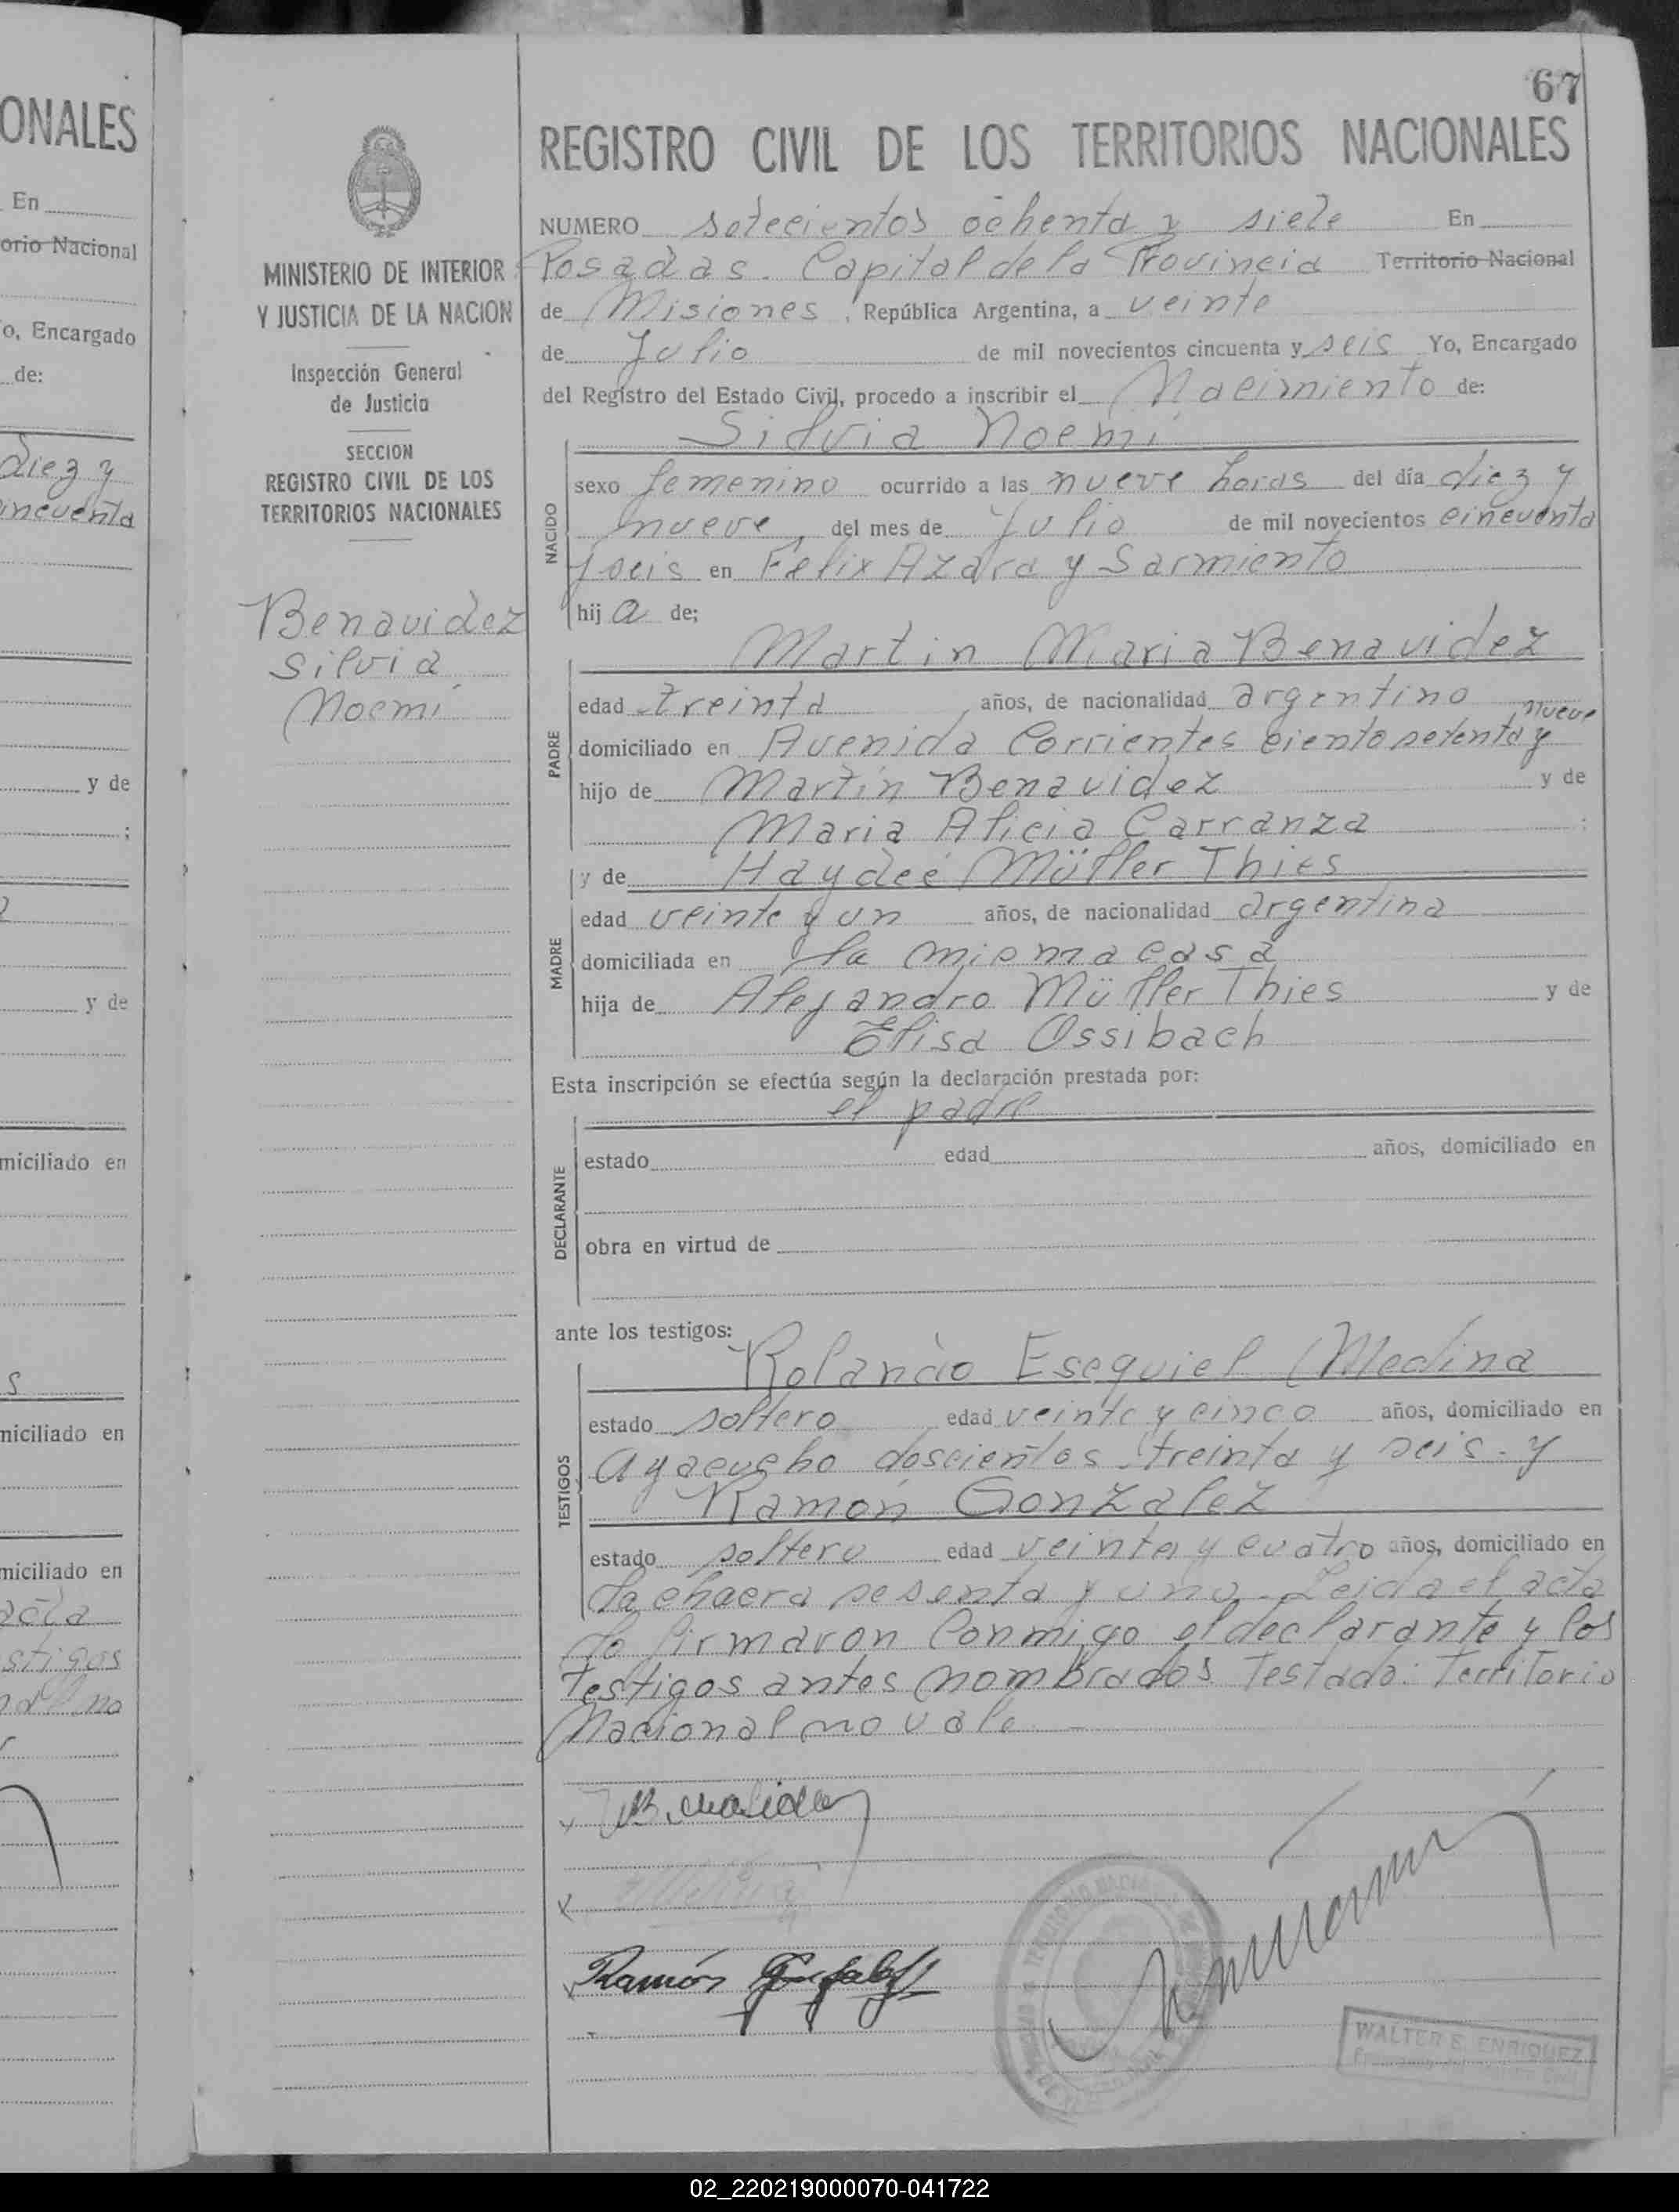 67
REGISTRO CIVIL DE LOS TERRITORIOS NACIONALES
NUMERO setecientos ochenta y siete En
Posadas. Capital de la Provincia Territorio Nacional
de Misiones, República Argentina, a veinte
de Julio de mil novecientos cincuenta y seis Yo, Encargado
del Registro del Estado Civil, procedo a inscribir el Nacimiento de:
Silvia Noemí
NACIDO
sexo femenino ocurrido a las nueve horas del día diez y
nueve, del mes de Julio de mil novecientos cincuenta
y seis en Felix Azara y Sarmiento
hij a de;
Martin Maria Benavidez
PADRE
edad treinta años, de nacionalidad argentino
domiciliado en Avenida Corrientes ciento setenta y nueve
hijo de Martín Benavidez y de
Maria Alicia Carranza ;
y de Haydeé Müller Thies
MADRE
edad veinte y un años, de nacionalidad argentina
domiciliada en la misma casa
hija de Alejandro Müller Thies y de
Elisa Ossibach
Esta inscripción se efectúa según la declaración prestada por:
el padre
DECLARANTE
estado edad años, domiciliado en
obra en virtud de
ante los testigos:
Rolando Esequiel Medina
TESTIGOS
estado soltero edad veinte y cinco años, domiciliado en
Ayacucho doscientos treinta y seis - y
Ramón Gonzalez
estado soltero edad veinte y cuatro años, domiciliado en
la chacra sesenta y uno. Leida el acta
la firmaron conmigo el declarante y los
testigos antes nombrados Testado: Territorio
Nacional no vale -
Ramón Gonzalez
WALTER E. ENRIQUEZ
MINISTERIO DE INTERIOR
Y JUSTICIA DE LA NACION
Inspección General
de Justicia
SECCION
REGISTRO CIVIL DE LOS
TERRITORIOS NACIONALES
Benavidez
Silvia
Noemí
ONALES
En
orio Nacional
o, Encargado
de:
diez y
cincuenta
y de
;
y de
miciliado en
s
miciliado en
miciliado en
acta
stigos
no
02_220219000070-041722